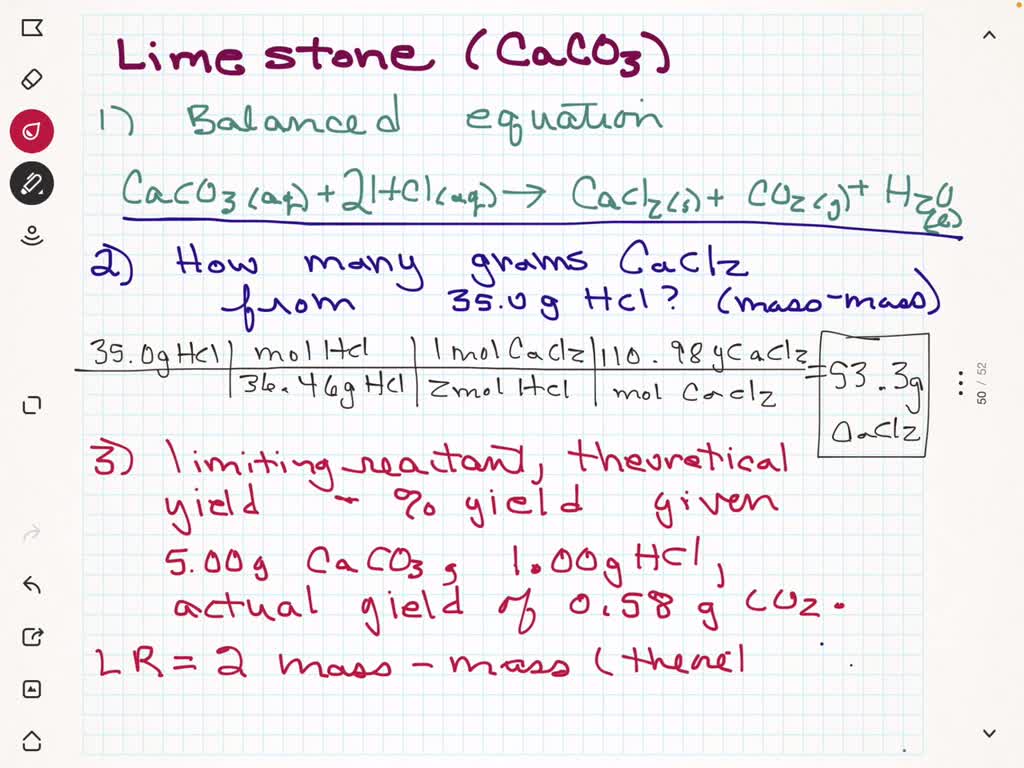 Lime stone (CaCO3)
1) Balanced equation
CaCO3(aq) + 2HCl(aq) → CaCl2(s) + CO2(g) + H2O(l)
2) How many grams CaCl2
from 35.0g HCl? (mass-mass)
35.0g HCl | mol HCl | 1 mol CaCl2 | 110.98g CaCl2
36.46g HCl | 2 mol HCl | mol CaCl2
= 53.3g
CaCl2
3) limiting reactant, theoretical
yield - % yield given
5.00g CaCO3, 1.00g HCl,
actual yield of 0.58 g CO2.
LR = 2 mass - mass (theirel
50 / 52